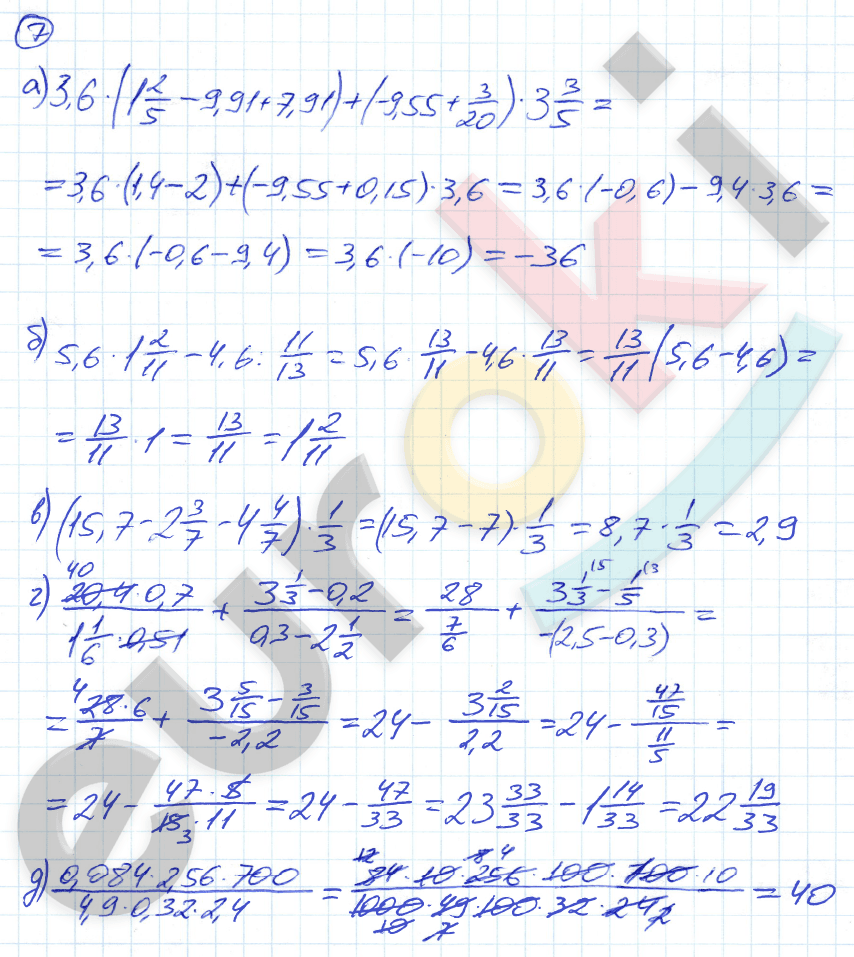 7
а) 3,6 · (1 2/5 − 9,91 + 7,91) + (−9,55 + 3/20) · 3 3/5 =
= 3,6 · (1,4 − 2) + (−9,55 + 0,15) · 3,6 = 3,6 · (−0,6) − 9,4 · 3,6 =
= 3,6 · (−0,6 − 9,4) = 3,6 · (−10) = −36
б) 5,6 · 1 2/11 − 4,6 : 11/13 = 5,6 · 13/11 − 4,6 · 13/11 = 13/11 (5,6 − 4,6) =
= 13/11 · 1 = 13/11 = 1 2/11
в) (15,7 − 2 3/7 − 4 4/7) · 1/3 = (15,7 − 7) · 1/3 = 8,7 · 1/3 = 2,9
40
г) 20,4 · 0,7 / 1 1/6 · 0,51 + 3 1/3 − 0,2 / 0,3 − 2 1/2 = 28 / 7/6 + 3 1/3 \15 − 1/5 \3 / −(2,5 − 0,3) =
= 4 28 · 6 / 7 + 3 5/15 − 3/15 / −2,2 = 24 − 3 2/15 / 2,2 = 24 − 47/15 / 11/5 =
= 24 − 47 · 5 / 15 3 · 11 = 24 − 47/33 = 23 33/33 − 1 14/33 = 22 19/33
12 8 4
д) 0,084 · 2,56 · 700 / 4,9 · 0,32 · 2,4 = 84 · 10 · 256 · 100 · 700 · 10 / 1000 · 49 · 100 · 32 · 24 2 = 40
10 7
euroki